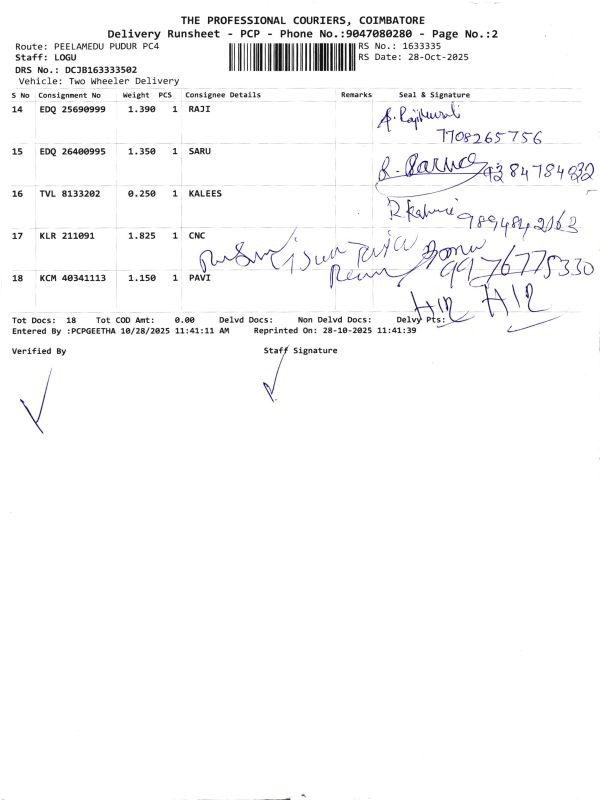 THE PROFESSIONAL COURIERS, COIMBATORE
Delivery Runsheet - PCP - Phone No.:9047080280 - Page No.:2
Route: PEELAMEDU PUDUR PC4 RS No.: 1633335
Staff: LOGU RS Date: 28-Oct-2025
DRS No.: DCJB163333502
Vehicle: Two Wheeler Delivery
S No Consignment No Weight PCS Consignee Details Remarks Seal & Signature
14 EDQ 25690999 1.390 1 RAJI
7708265756
15 EDQ 26400995 1.350 1 SARU
16 TVL 8133202 0.250 1 KALEES
17 KLR 211091 1.825 1 CNC
18 KCM 40341113 1.150 1 PAVI
Tot Docs: 18 Tot COD Amt: 0.00 Delvd Docs: Non Delvd Docs: Delvy Pts:
Entered By :PCPGEETHA 10/28/2025 11:41:11 AM Reprinted On: 28-10-2025 11:41:39
Verified By Staff Signature